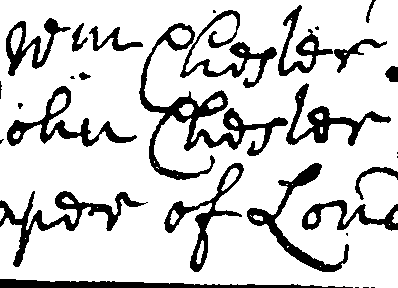 Wm Chester
John Chester
aper of Lond